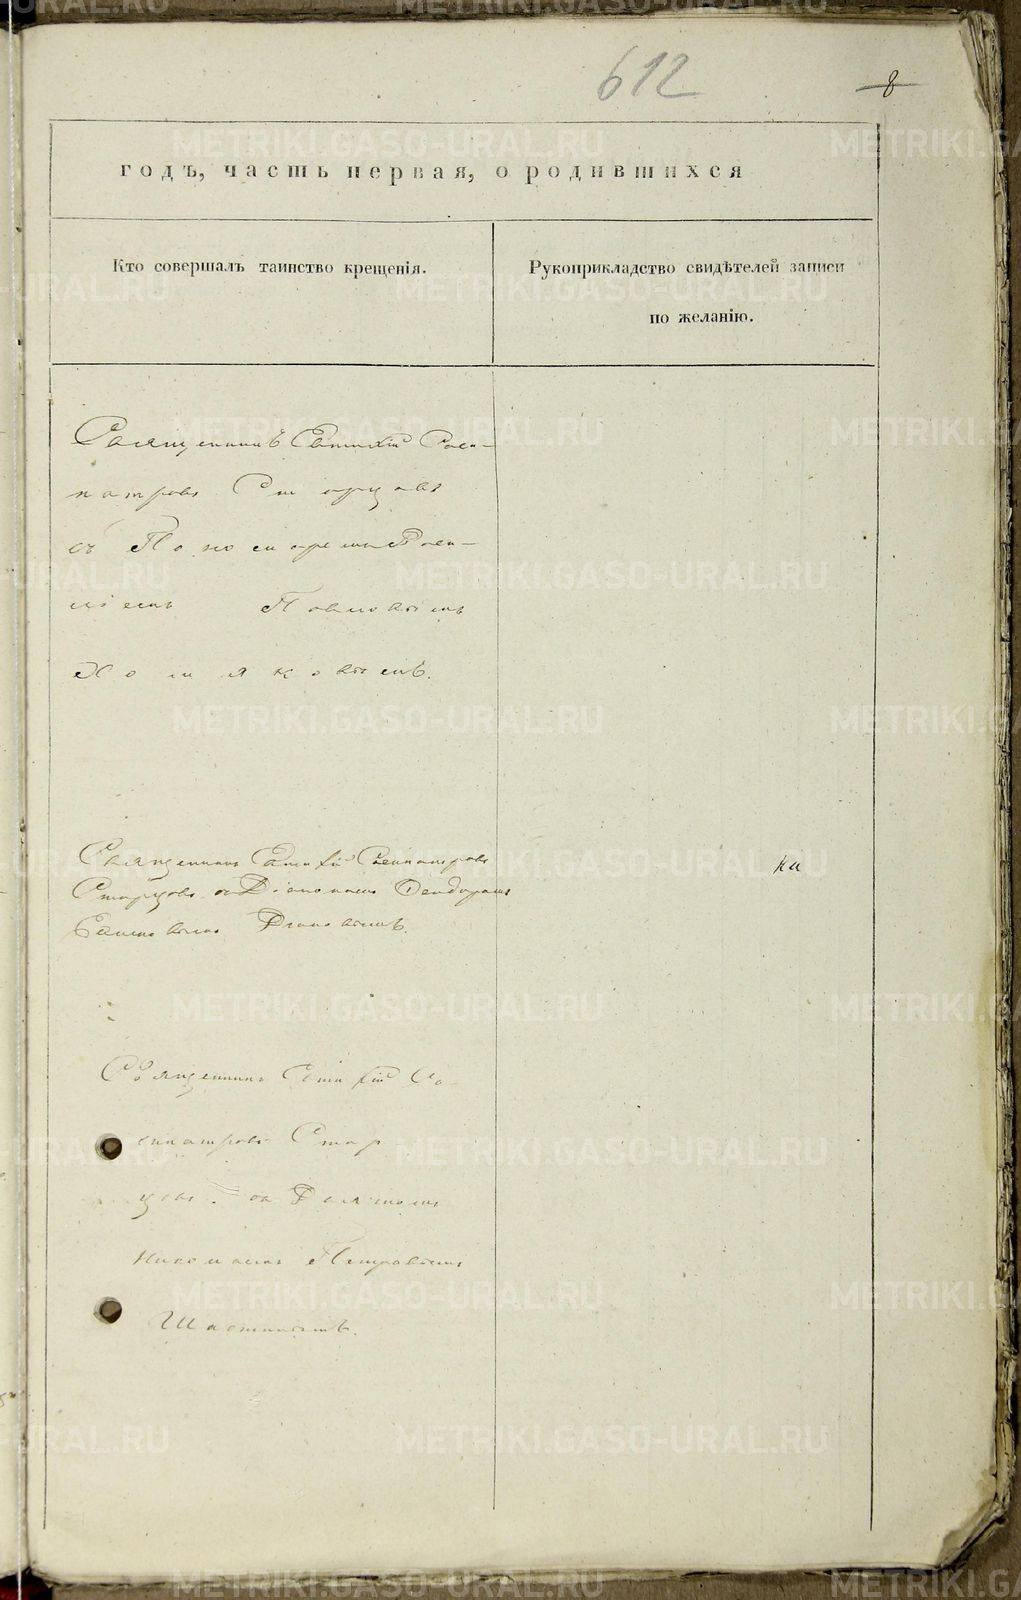 612
8
годъ, часть первая, о родившихся
Кто совершалъ таинство крещенія.
Рукоприкладство свидѣтелей записи
по желанію.
Священникъ Евтихій Соси-
патровъ Старцовъ
съ Пономаремъ
Павловымъ
Хомяковымъ.
Священникъ Евтихій Сосипатровъ
Старцовъ съ Діакономъ Феодоромъ
ка
Священникъ Евтихій Со-
сипатровъ Стар
цовъ. съ Дьячкомъ
Николаемъ Петровымъ
METRIKI.GASO-URAL.RU